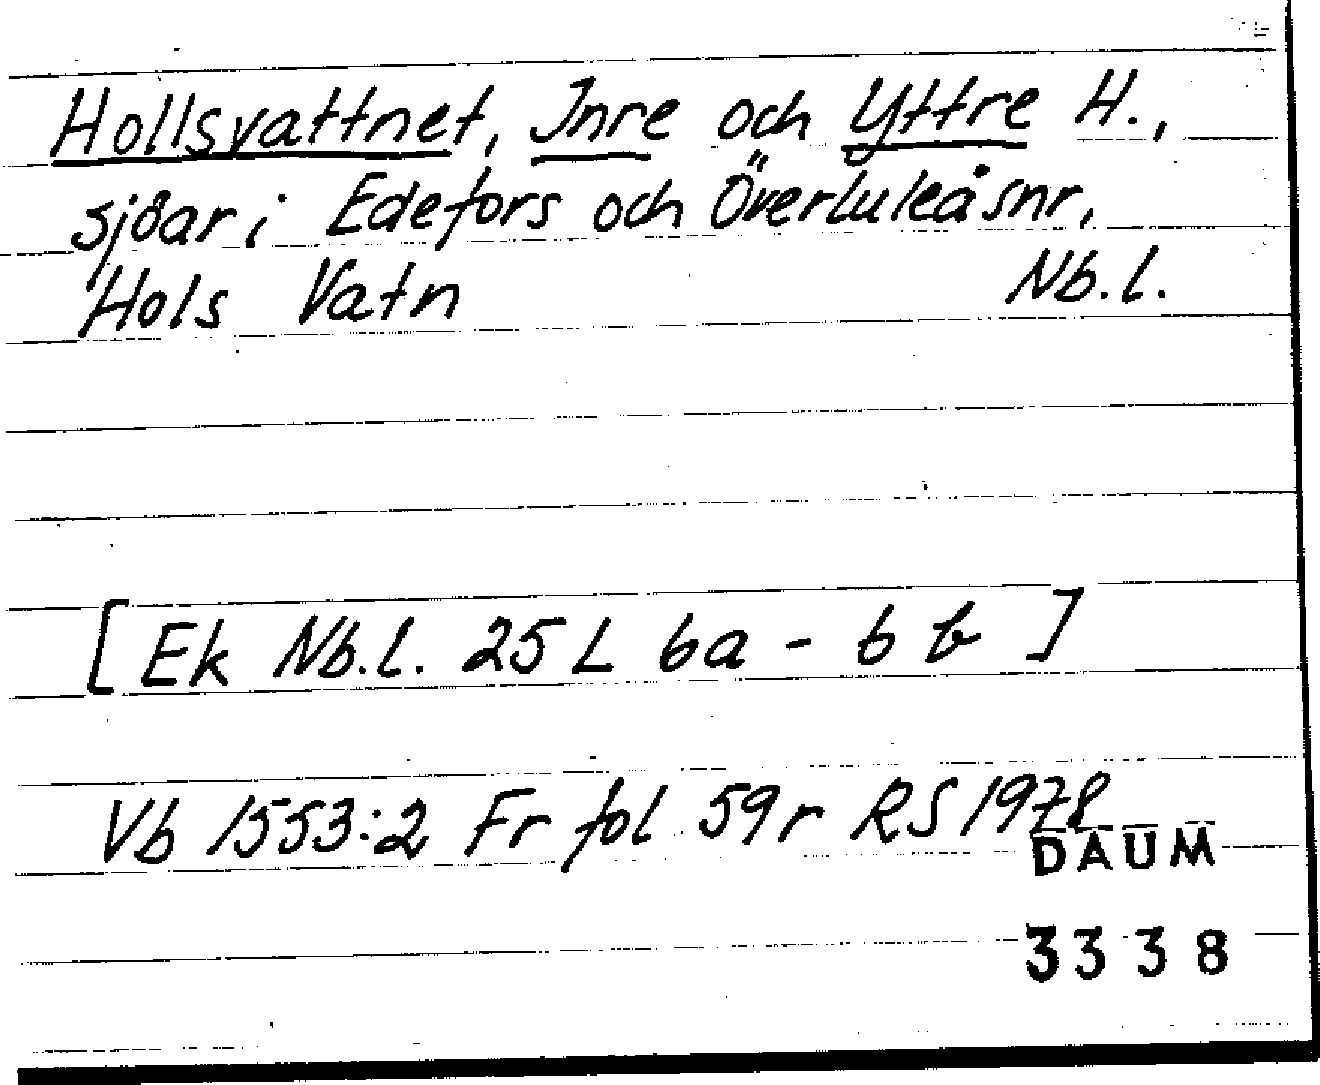 Hollsvattnet, Inre och Yttre H.,
sjöar i Edefors och Överluleå snr,
Hols Vatn Nb.l.
[Ek Nb.l. 25 L 6a - 6 b]
Vb 1553:2 Fr fol 59r RS 1978
DAUM
3338